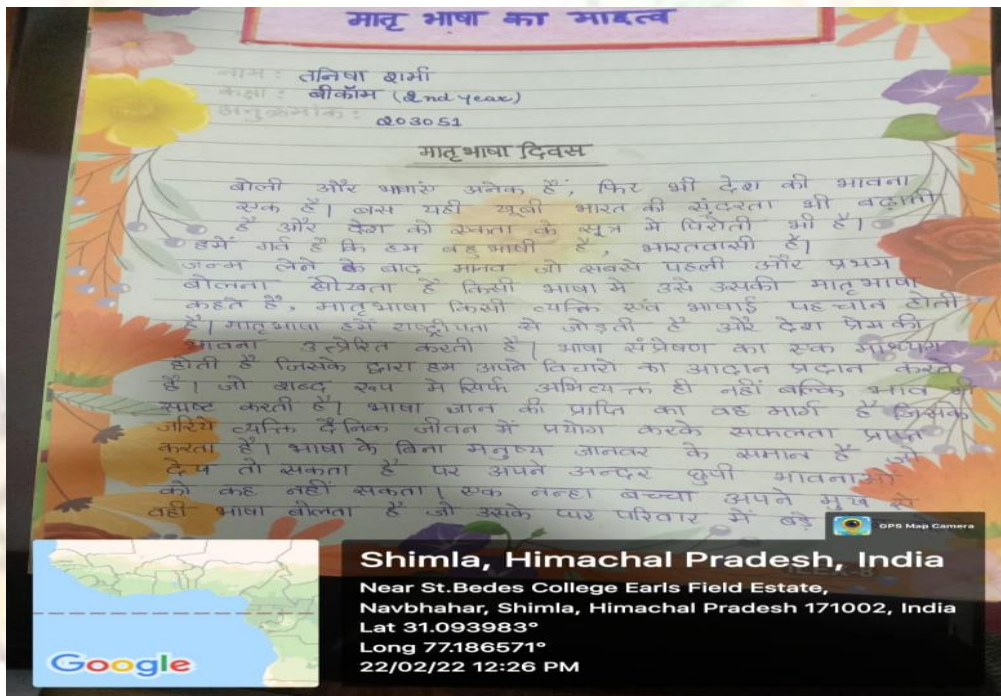 मातृ भाषा का माहत्व
नाम: तनिषा शर्मा
कक्षा: बीकॉम (2nd year)
अनुक्रमांक:
203051
मातृभाषा दिवस
बोली और भाषाएं अनेक हैं, फिर भी देश की भावना
एक है। बस यही खूबी भारत की सुंदरता भी बढ़ाती
है और देश को एकता के सूत्र में पिरोती भी है।
हमें गर्व है कि हम बहुभाषी हैं, भारतवासी हैं।
जन्म लेने के बाद मानव जो सबसे पहली और प्रथम
बोलना सीखता है किसी भाषा में उसे उसकी मातृभाषा
कहते हैं, मातृभाषा किसी व्यक्ति एवं भाषाई पहचान होती
है। मातृभाषा हमें राष्ट्रीयता से जोड़ती है और देश प्रेम की
भावना उत्प्रेरित करती है। भाषा संप्रेषण का एक माध्यम
होती है जिसके द्वारा हम अपने विचारो का आदान प्रदान करते
हैं। जो शब्द रूप में सिर्फ अभिव्यक्त ही नहीं बल्कि भाव भी
स्पष्ट करती है। भाषा ज्ञान की प्राप्ति का वह मार्ग है जिसके
जरिये व्यक्ति दैनिक जीवन में प्रयोग करके सफलता प्राप्त
करता है। भाषा के बिना मनुष्य जानवर के समान है जो
देख तो सकता है पर अपने अन्दर छुपी भावनाओं
को कह नहीं सकता। एक नन्हा बच्चा अपने मुख से
वही भाषा बोलता है जो उसके घर परिवार में बड़े
GPS Map Camera
Shimla, Himachal Pradesh, India
Near St.Bedes College Earls Field Estate,
Navbhahar, Shimla, Himachal Pradesh 171002, India
Lat 31.093983°
Long 77.186571°
22/02/22 12:26 PM
Google